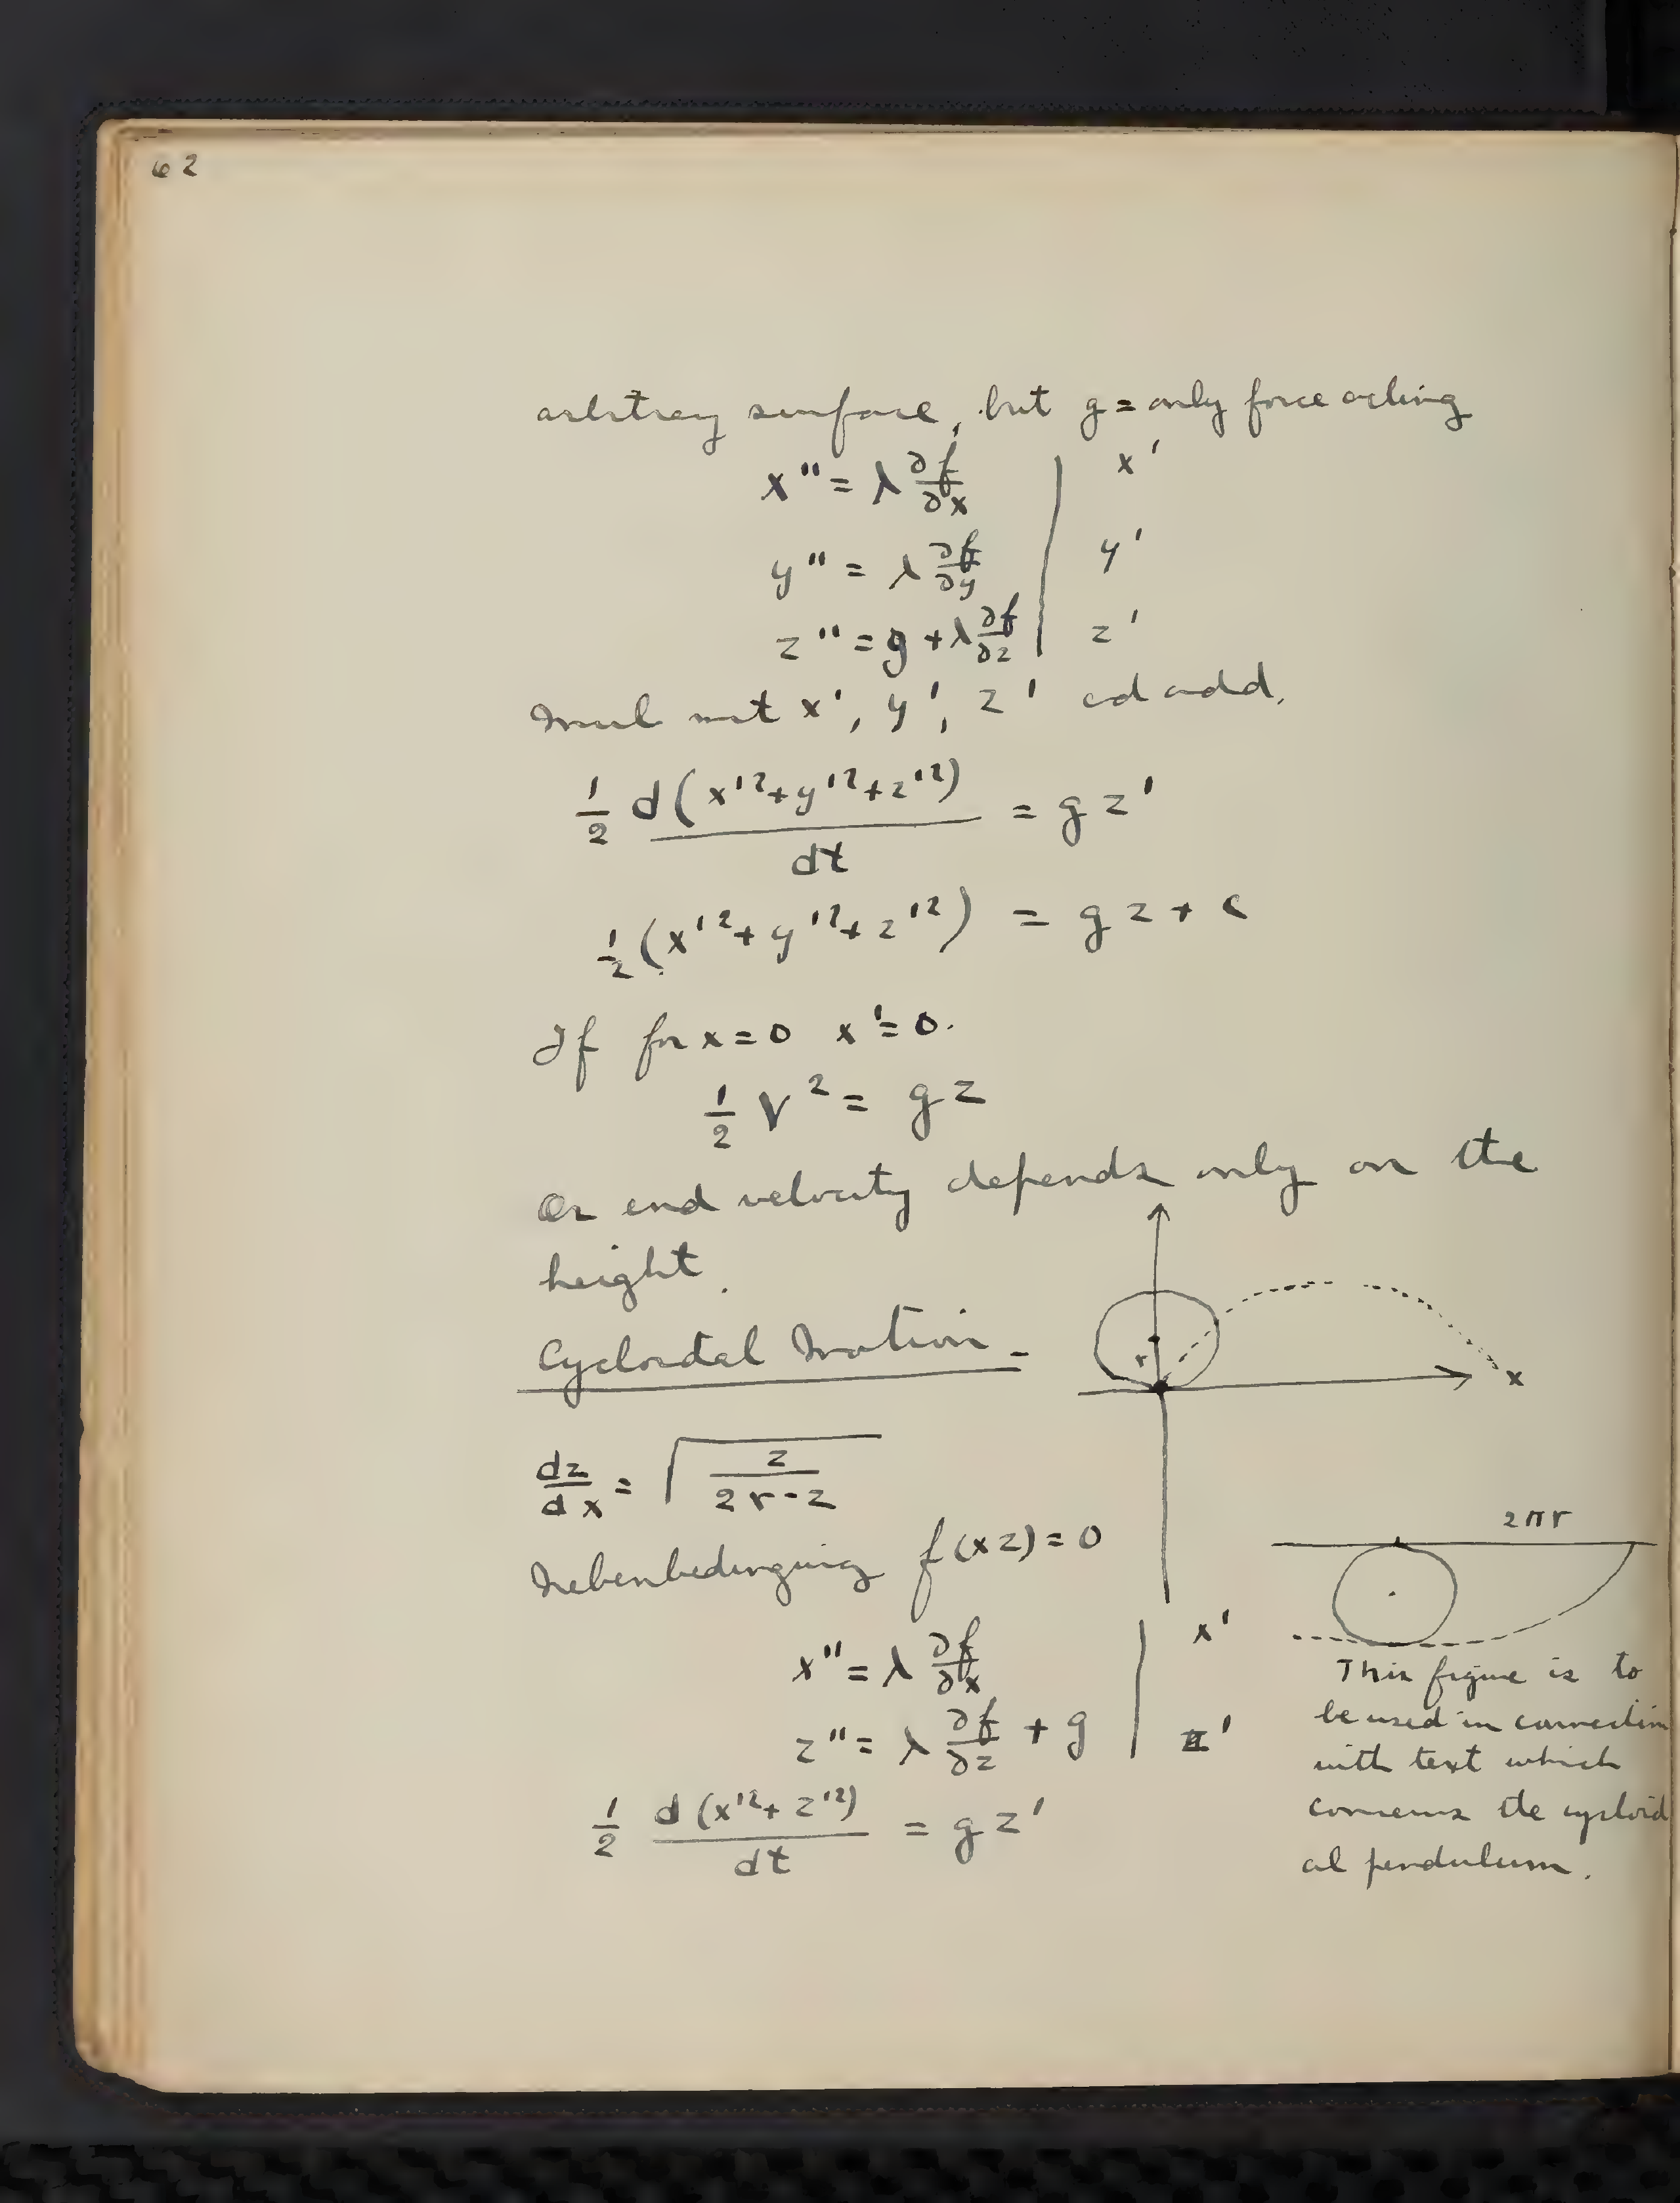 62
arbitrary surface, but g = only force acting
x'' = λ ∂f/∂x | x'
y'' = λ ∂f/∂y | y'
z'' = g + λ ∂f/∂z | z'
Mul mit x', y', z' ad add.
1/2 d(x'²+y'²+z'²)/dt = g z'
1/2 (x'²+y'²+z'²) = g z + c
If for x=0 x'=0.
1/2 V² = g z
Or end velocity depends only on the
height.
Cycloidal Motion -
r x
dz/dx = √(z/(2r-z))
Nebenbedingung f(xz)=0
2πr
x'' = λ ∂f/∂x | x'
z'' = λ ∂f/∂z + g | z'
1/2 d(x'²+z'²)/dt = g z'
This figure is to
be used in connection
with text which
concerns the cycloid
al pendulum.